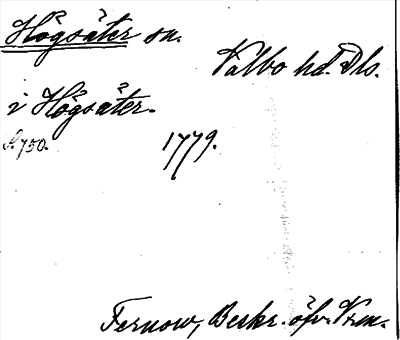 Högsäter sn.
Valbo hd. Dls.
i Högsäter.
S. 750.
1779.
Fernow, Beskr. öfv. Vrm.